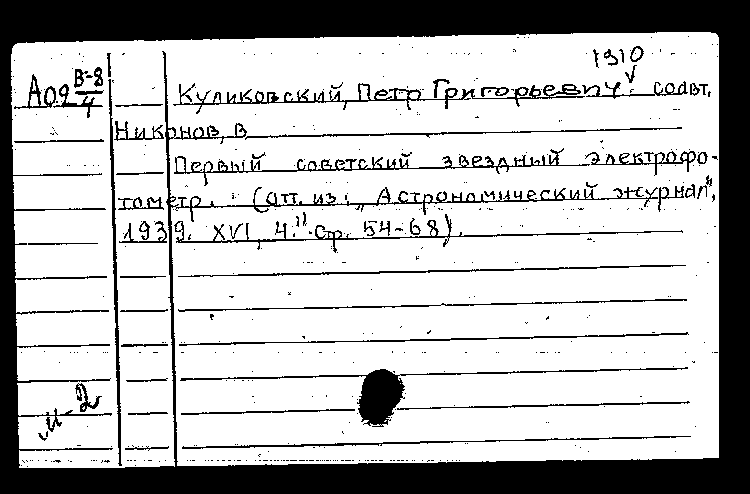 1910
А09 В-8/4
Куликовский, Петр Григорьевич. соавт.
Никонов, В
Первый советский звездный электрофо-
тометр. (отт. из: „Астрономический журнал",
1939. XVI, 4." Стр. 54-68).
М-2